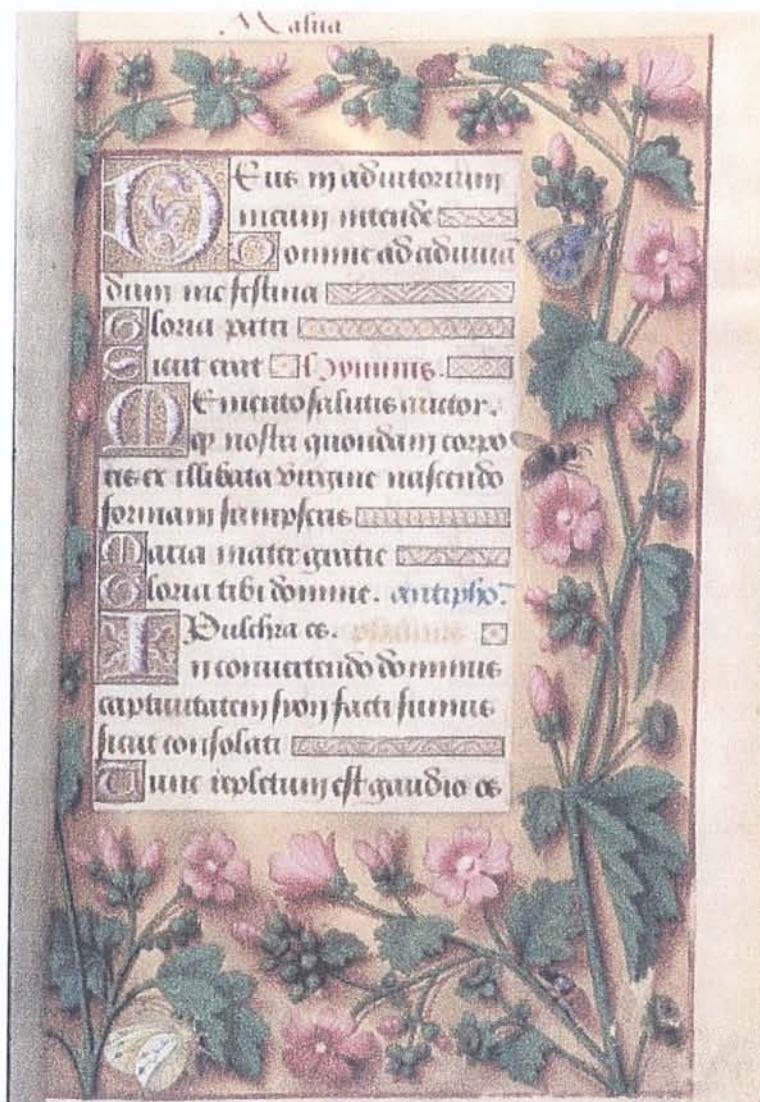 Malua
Deus in adiutorium
meum intende
Domine ad adiuuā
dum me festina
Gloria patri
Sicut erat Hymnus.
Memento salutis auctor.
qp nostri quondam corpo
ris ex illibata virgine nascendo
formam sumpseris
Maria mater gratie
Gloria tibi domine. antipho.
Pulchra es.
In conuertendo dominus
captiuitatem syon facti sumus
sicut consolati
Tunc repletum est gaudio os